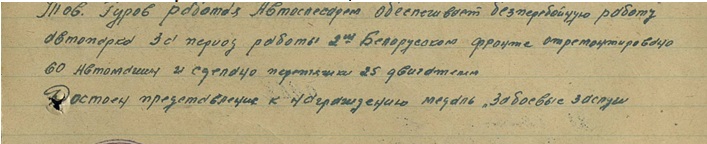 Тов. Гуров работая Автослесарем обеспечивает безперебойную работу
автопарка За период работы 2ом Белорусском фронте отремонтировано
60 Автомашин и сделано перетяжки 25 двигателям
Достоен представление к награждению медаль "За боевые заслуги